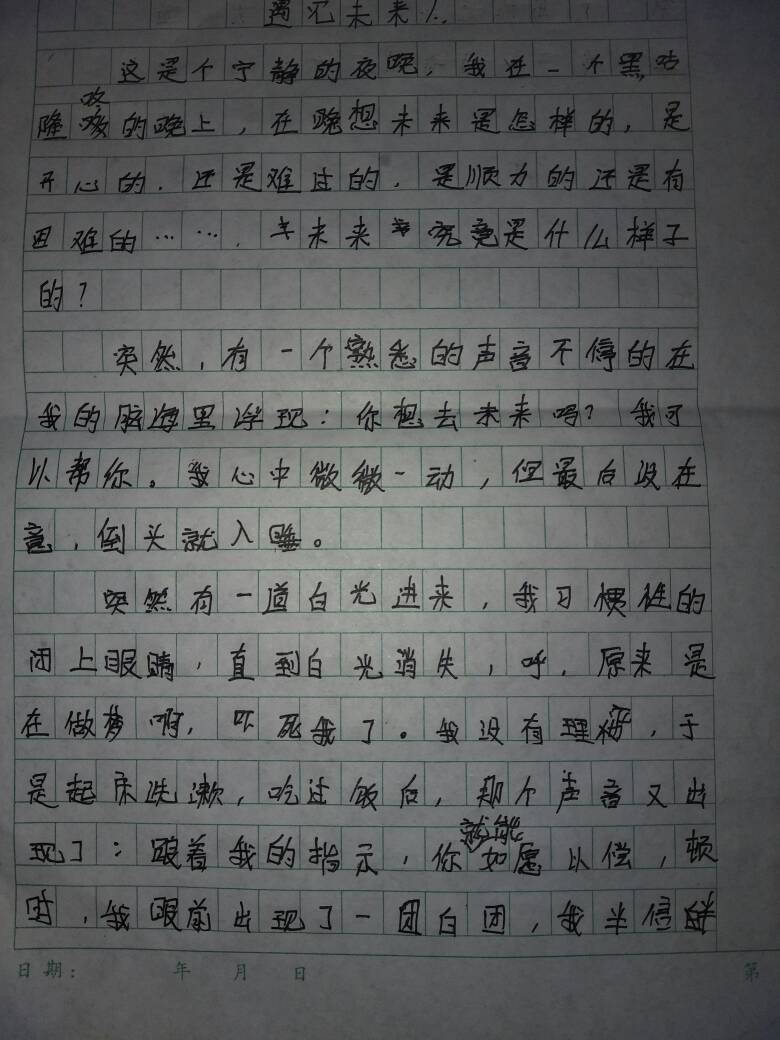 遇见未来人
这是个宁静的夜晚，我在一个黑咕
隆咚的晚上，在晚想未来是怎样的，是
开心的，还是难过的，是顺力的还是有
困难的……，未来究竟是什么样子
的？
突然，有一个熟悉的声音不停的在
我的脑海里浮现：你想去未来吗？我可
以帮你。我心中微微一动，但最后没在
意，倒头就入睡。
突然有一道白光进来，我习惯性的
闭上眼睛，直到白光消失，呼，原来是
在做梦啊，吓死我了。我没有理，于
是起床洗漱，吃过饭后，那个声音又出
现了：跟着我的指示，你就能如愿以偿，顿
时，我眼前出现了一团白团，我半信半
日期： 年 月 日 第